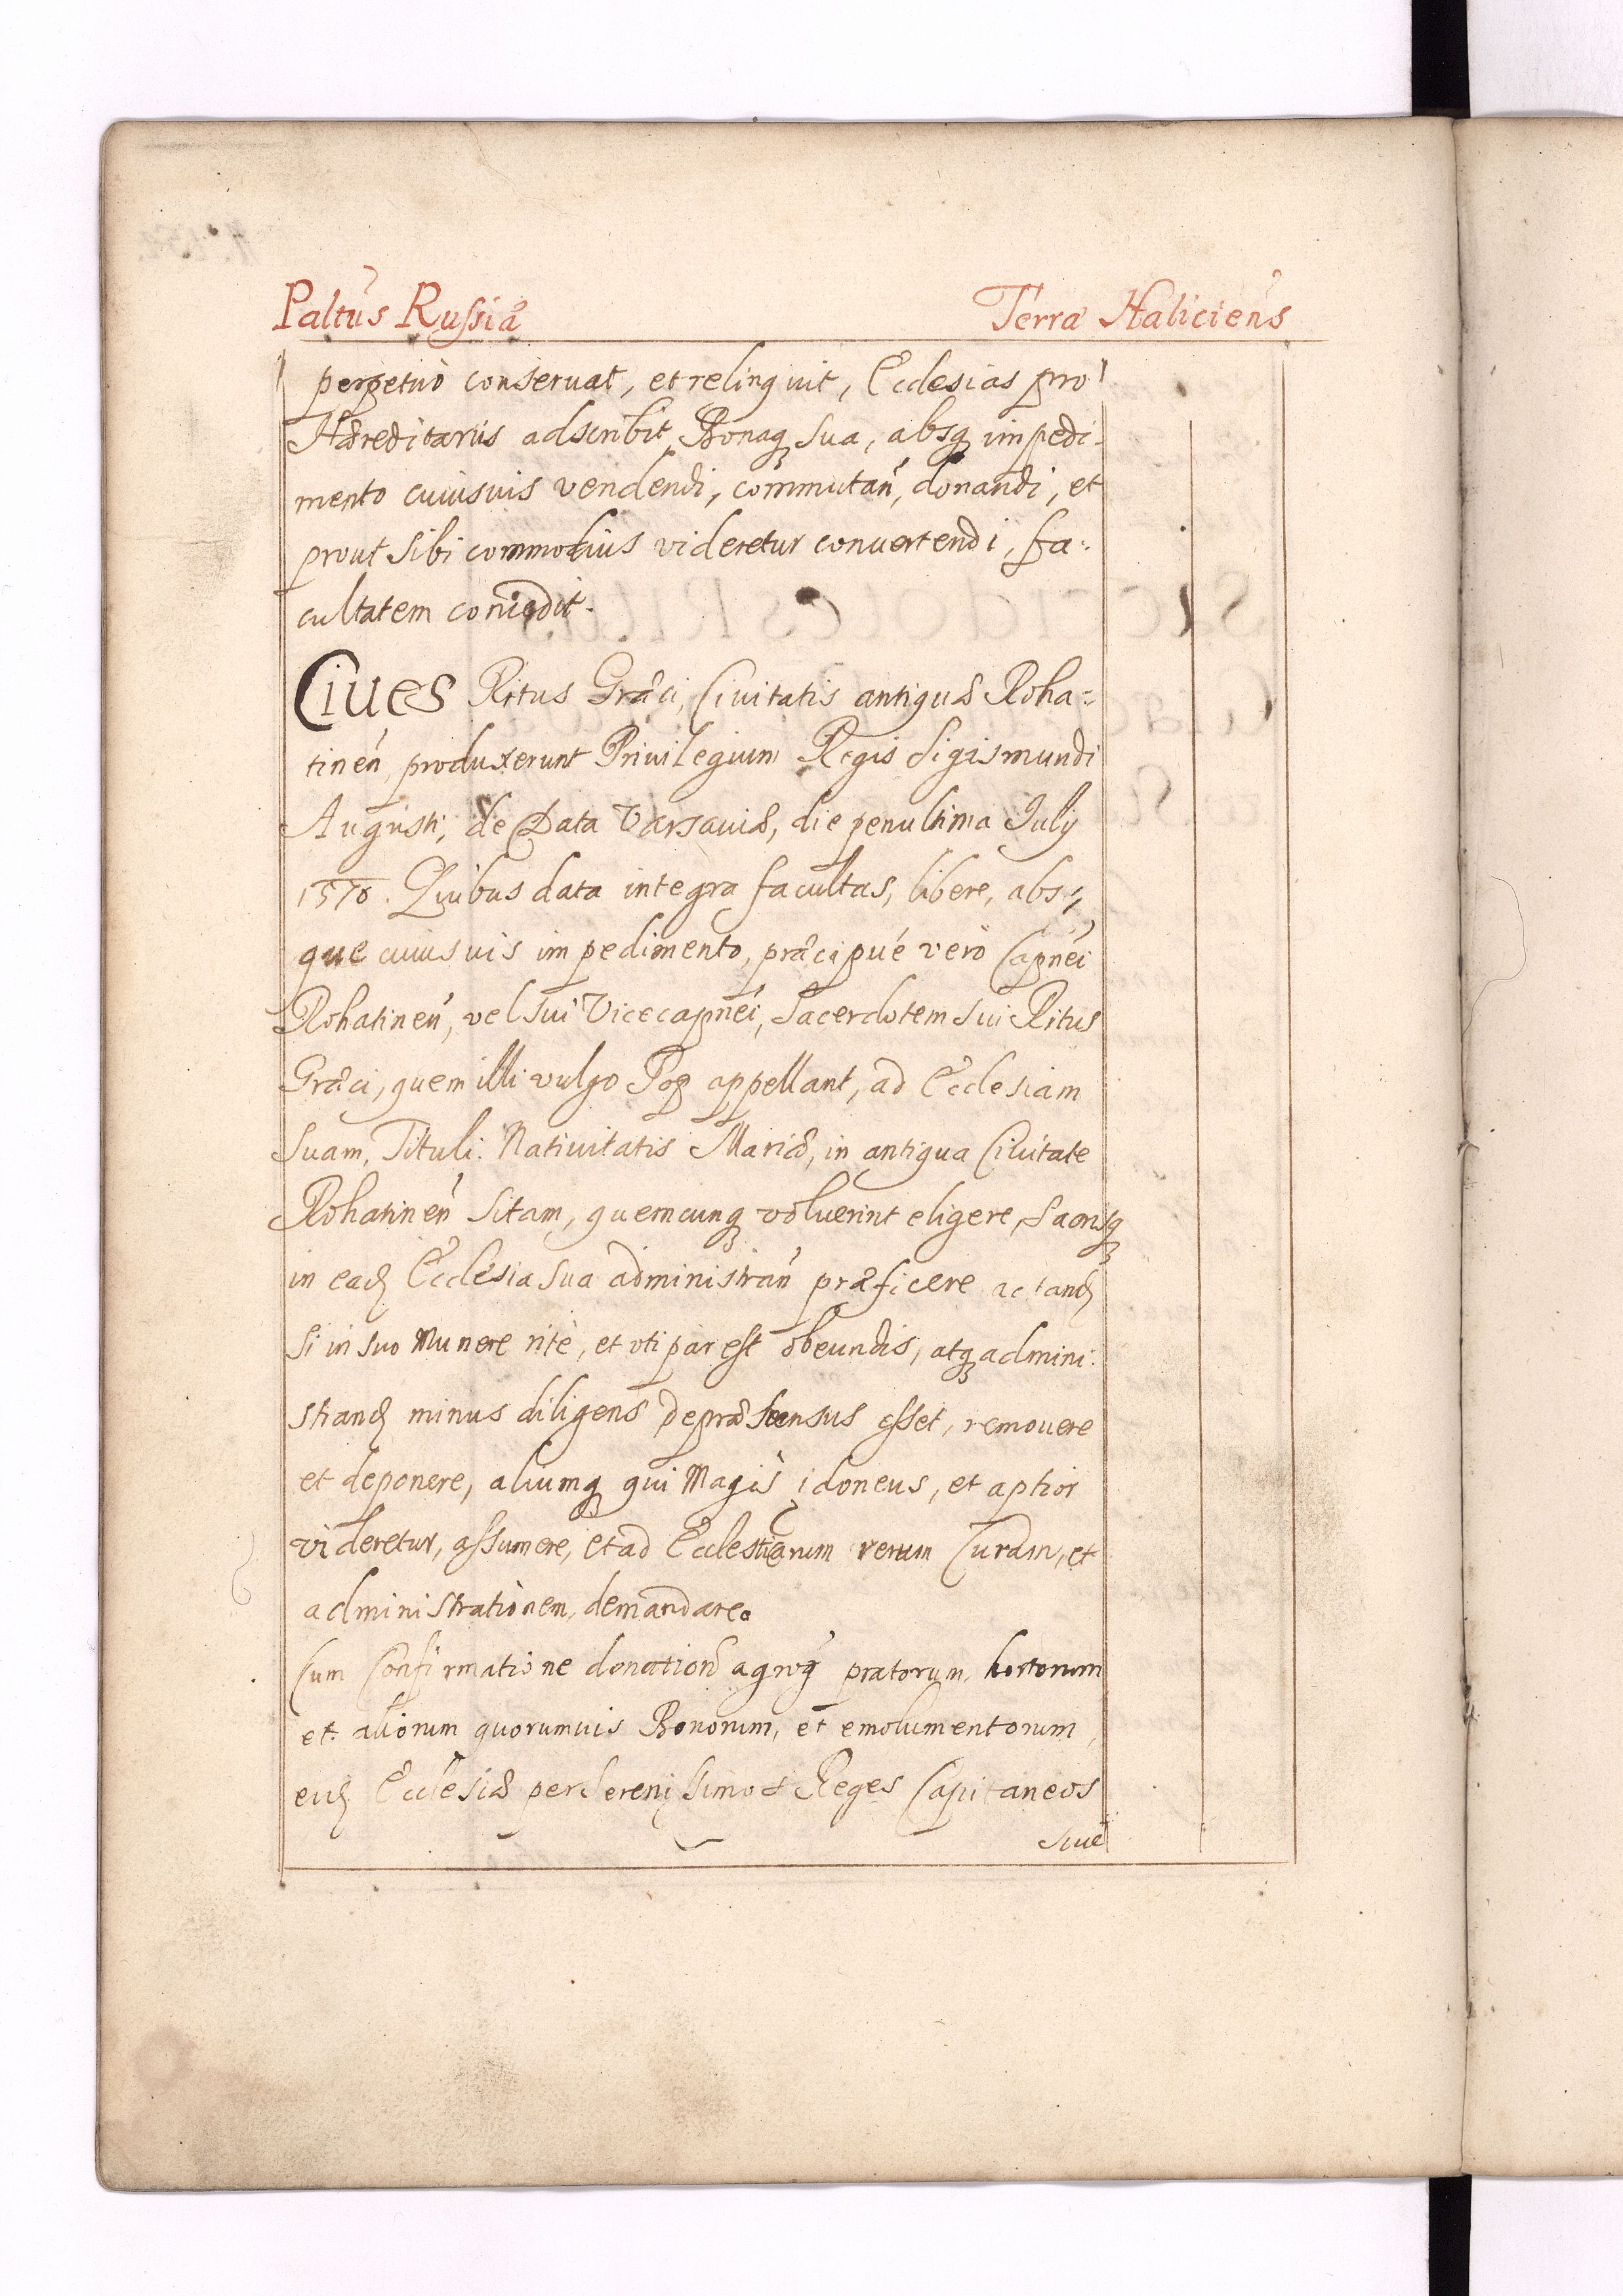 Paltus Russiæ Terra Haliciens
perpetuò conseruat, et relinquit, Ecclesias pro
Hæreditariis adscribit, Bonaq sua, absq impedi-
mento cuiusuis vendendi, commutan, donandi, et
prout sibi commodius videretur conuertendi, fa-
cultatem concedit.
Ciues Ritus Græci, Ciuitatis antiquæ Roha=
tinen, produxerunt Priuilegium Regis Sigismundi
Augusti, de Data Varsauiæ, die penultima July
1570. Quibus data integra facultas, libere, abs=
que cuiusuis impedimento, præcipué verò Capnei
Rohatinen, vel sui Vicecapnei, Sacerdotem sui Ritus
Græci, quem illi vulgo Pop appellant, ad Ecclesiam
suam, Tituli. Natiuitatis Mariæ, in antiqua Ciuitate
Rohatinen sitam, quemcunq voluerint eligere, Sacrisq
in ead Ecclesia sua administran præficere ac tand
si in suo Munere ritè, et vti par est obeundis, atq admini-
strand minus diligens depræhensus esset, remouere
et deponere, aliumq qui Magis idoneus, et aptior
videretur, assumere, et ad Ecclesticarum rerum Curam, et
administrationem, demandare.
Cum Confirmatione donation agroꝝ pratorum, hortorum
et aliorum quorumuis Bonorum, et emolumentorum,
eid Ecclesiæ per Serenissimos Reges Capitaneos
siue